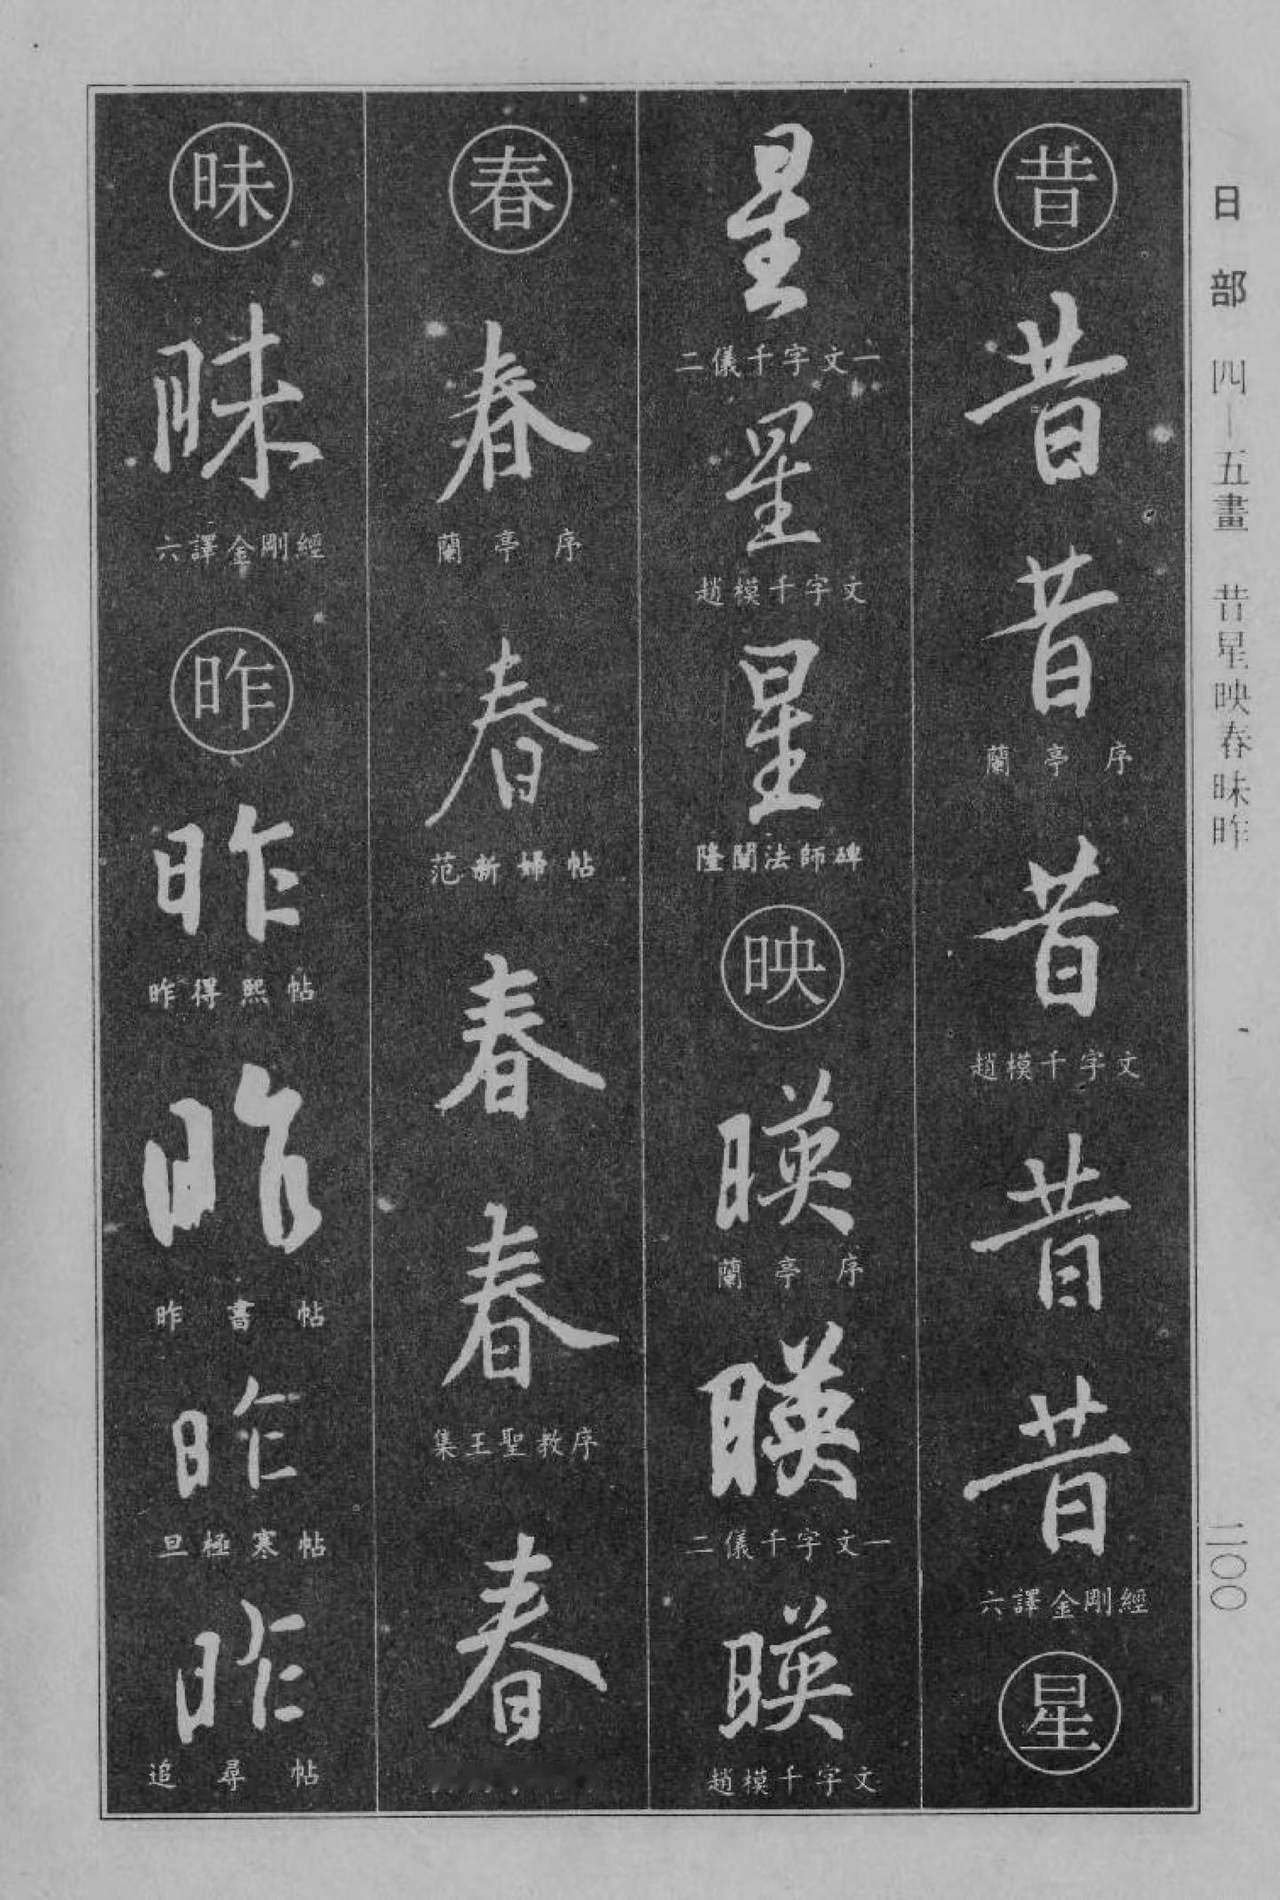 日部 四—五畫 昔星映春昧昨
二〇〇
昔
昔
昔
蘭亭序
昔
趙模千字文
昔
昔
六譯金剛經
星
星
二儀千字文一
星
趙模千字文
星
隆闡法師碑
映
暎
蘭亭序
暎
二儀千字文一
暎
趙模千字文
春
春
蘭亭序
春
范新婦帖
春
春
集王聖教序
春
昧
昧
六譯金剛經
昨
昨
昨得熙帖
昨
昨書帖
昨
旦極寒帖
昨
追尋帖